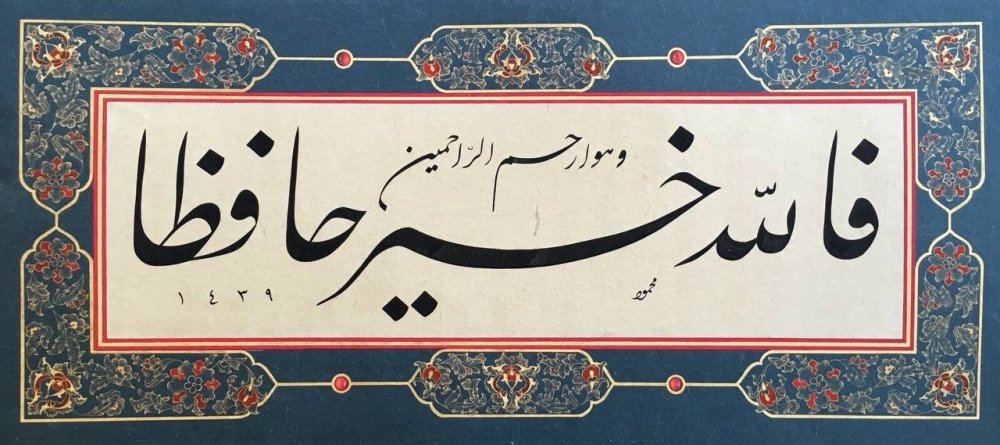 فالله خير حافظا
وهو ارحم الرّاحمين
محمود
١٤٣٩